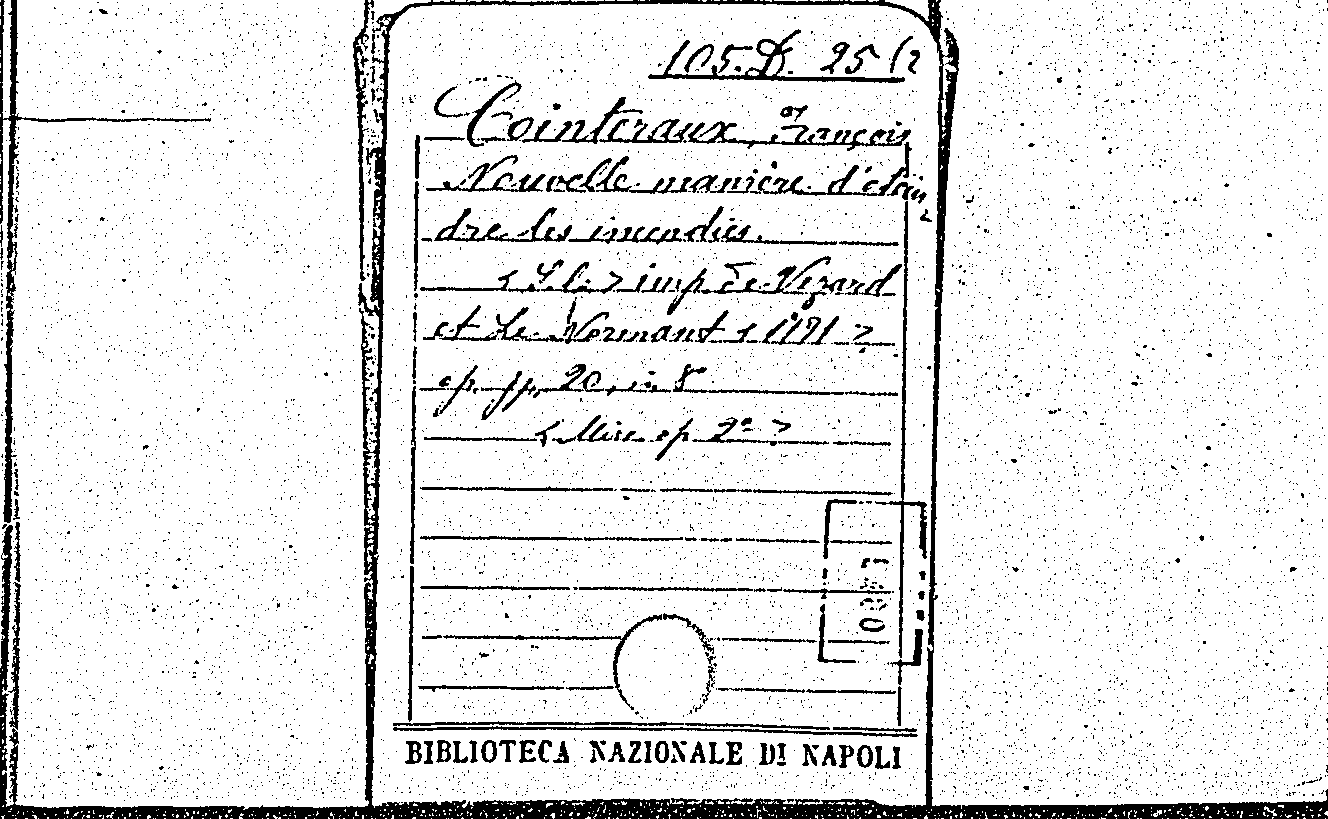 105. D. 25 (2
Cointeraux, François
Nouvelle manière d'etein-
dre les incendies.
< S. l. > imp. de Vezard
et Le Normant < 1791 >
op. pp. 20, in 8°
< Misc. op. 2° >
BIBLIOTECA NAZIONALE DI NAPOLI